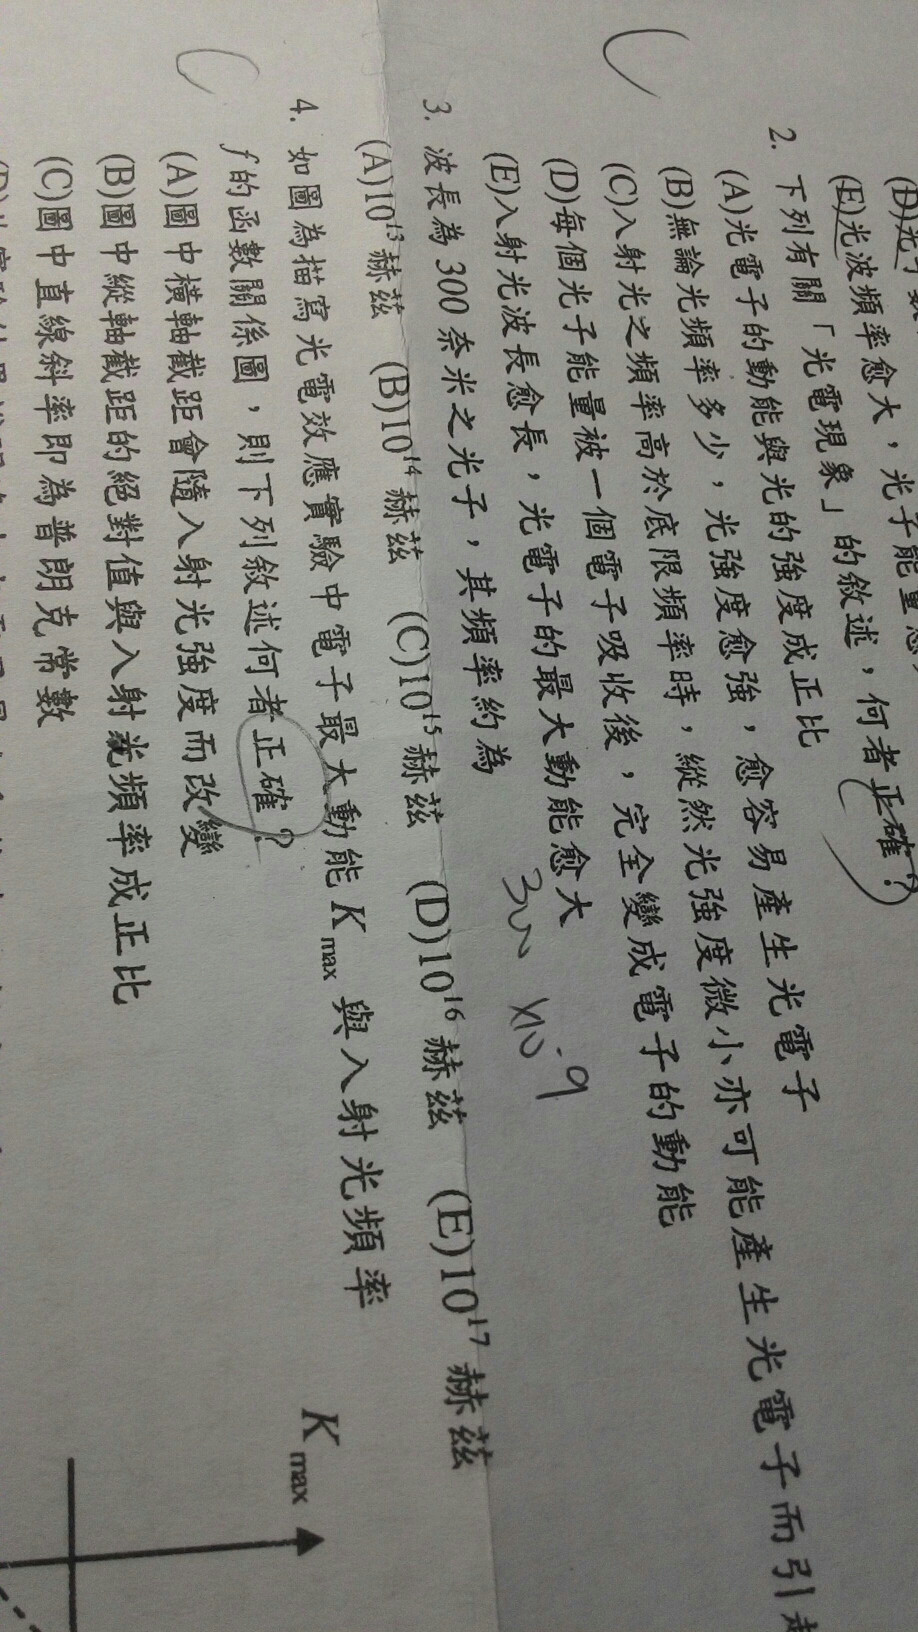 (E)光波頻率愈大，光子能量愈
2. 下列有關「光電現象」的敘述，何者正確？
(A)光電子的動能與光的強度成正比
(B)無論光頻率多少，光強度愈強，愈容易產生光電子
(C)入射光之頻率高於底限頻率時，縱然光強度微小亦可能產生光電子而引起
(D)每個光子能量被一個電子吸收後，完全變成電子的動能
(E)入射光波長愈長，光電子的最大動能愈大
3. 波長為 300 奈米之光子，其頻率約為
300 ×10⁻⁹
(A)10¹³赫茲 (B)10¹⁴赫茲 (C)10¹⁵赫茲 (D)10¹⁶赫茲 (E)10¹⁷赫茲
4. 如圖為描寫光電效應實驗中電子最大動能 Kmax 與入射光頻率
f 的函數關係圖，則下列敘述何者正確？
(A)圖中橫軸截距會隨入射光強度而改變
(B)圖中縱軸截距的絕對值與入射光頻率成正比
(C)圖中直線斜率即為普朗克常數
Kmax